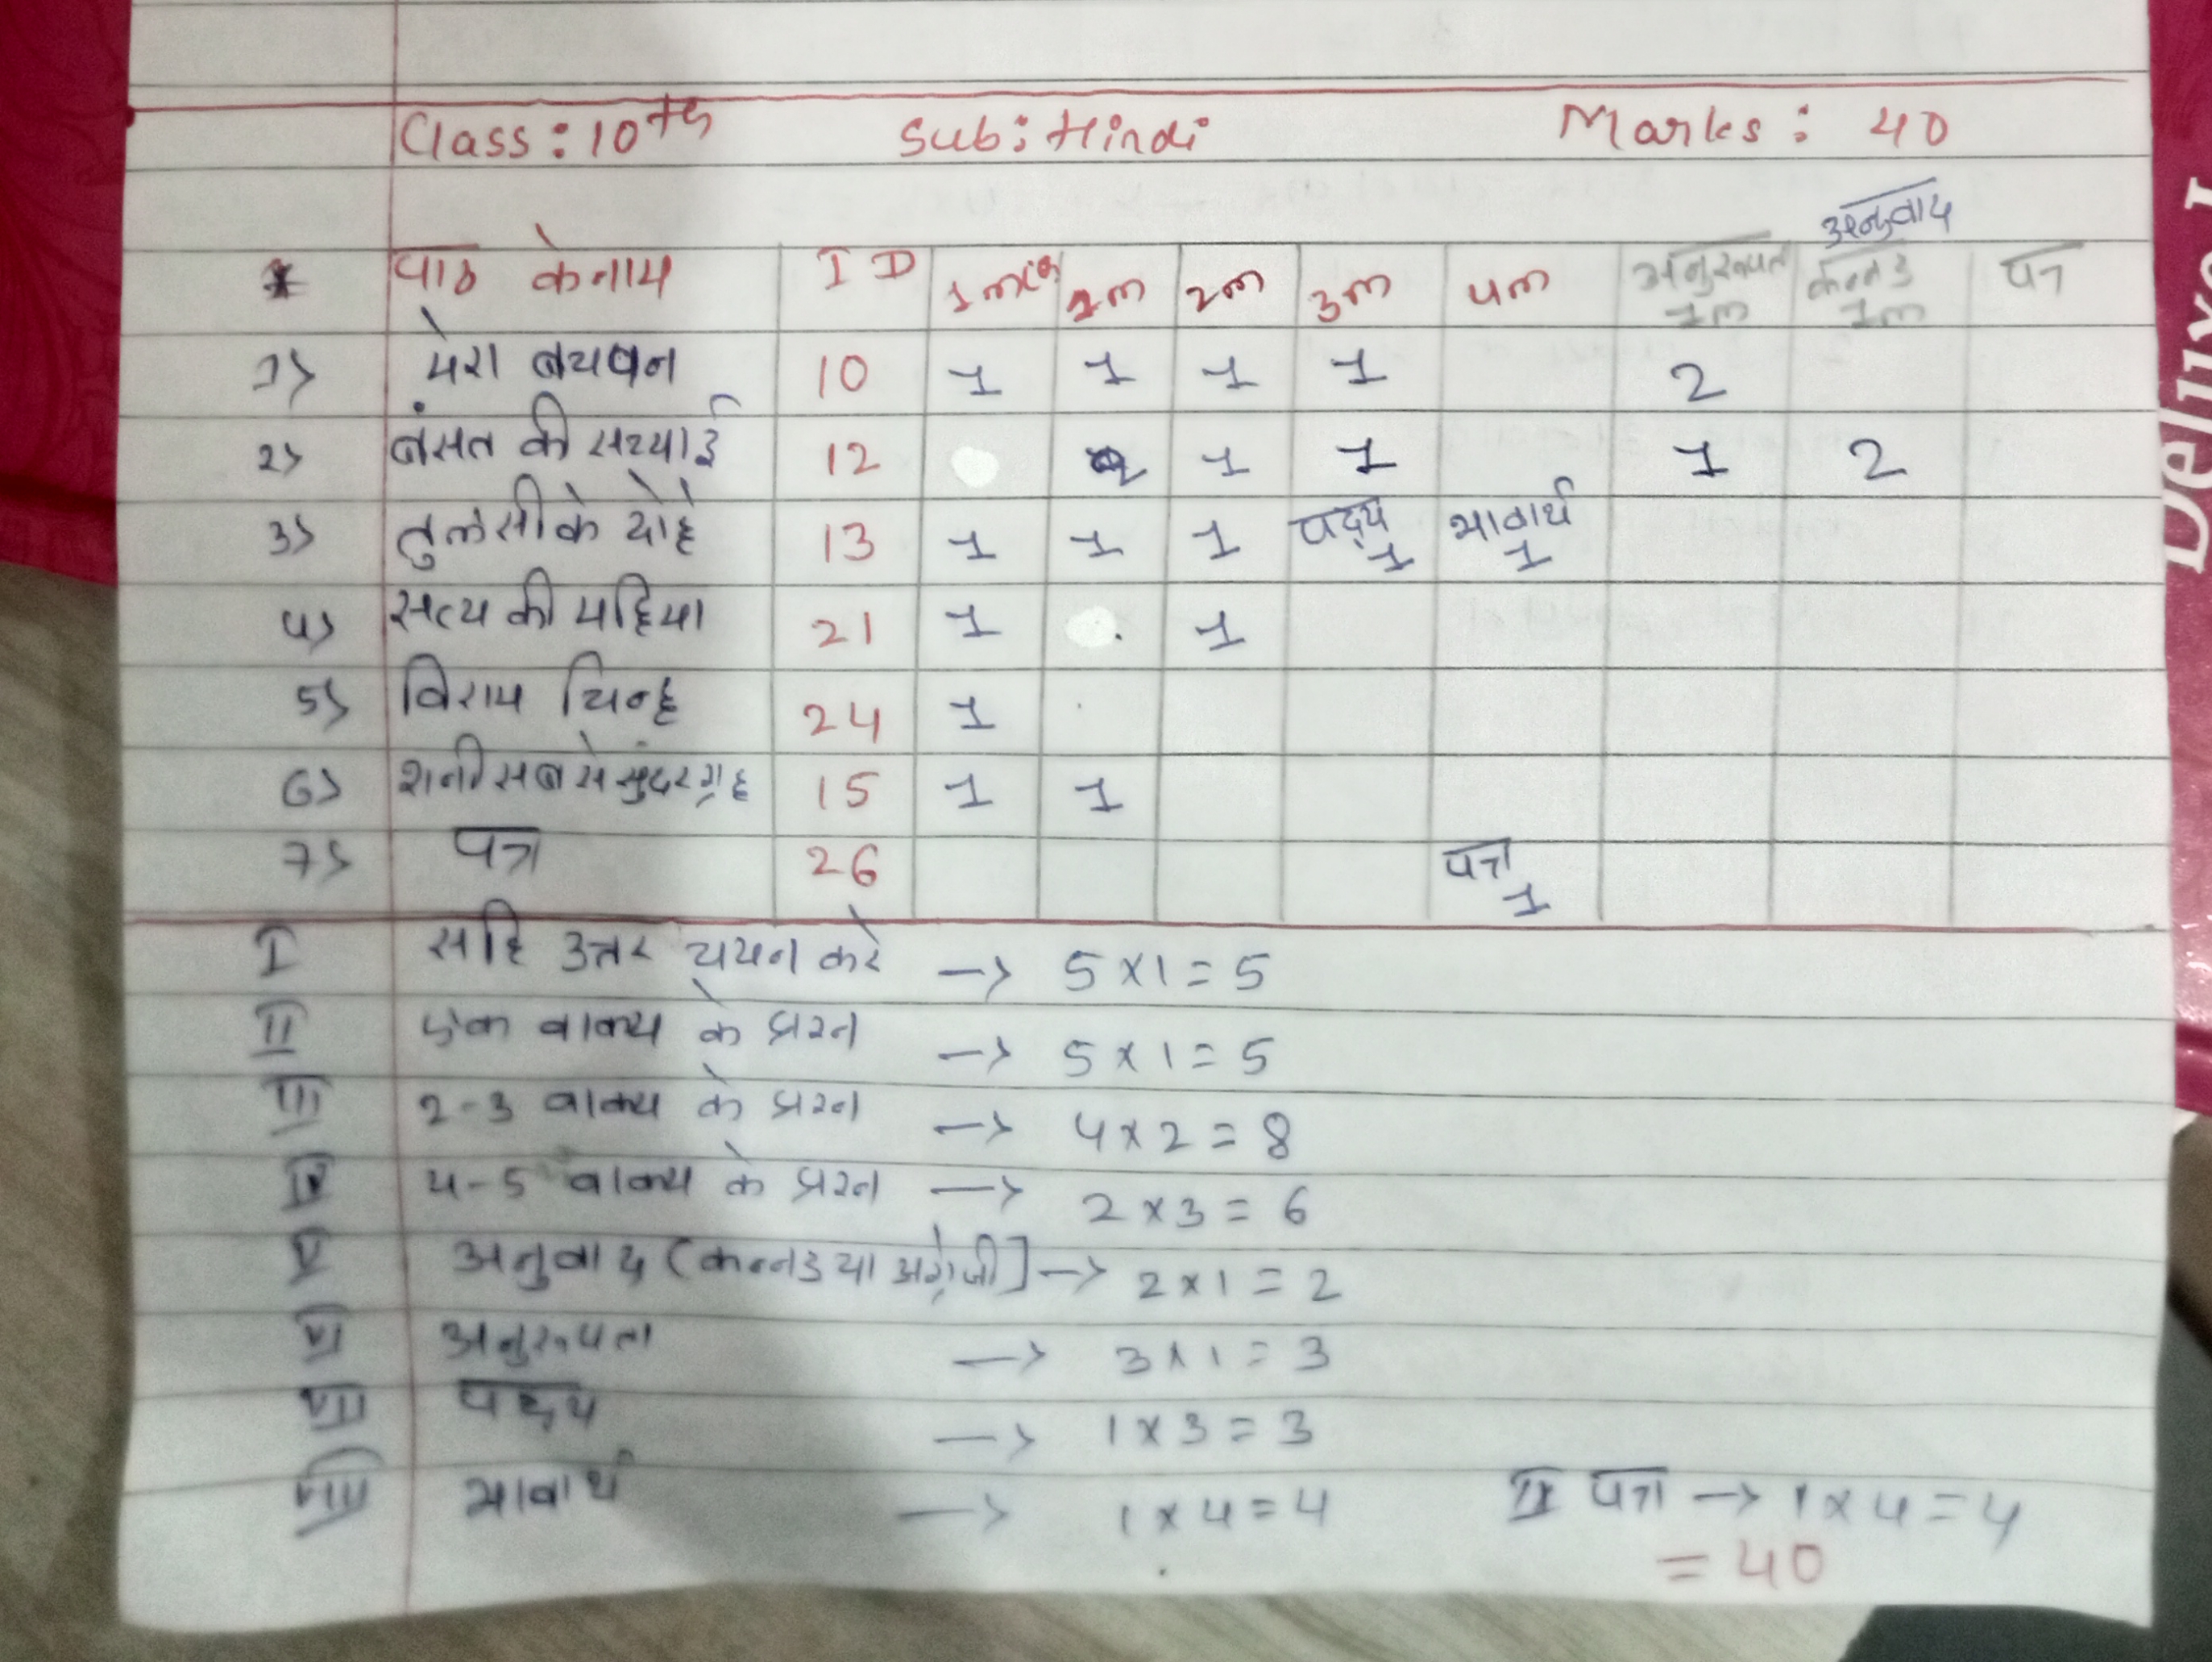 Class: 10th Sub: Hindi Marks: 40
अनुवाद
* पाठ के नाम ID 1 mcq 1m 2m 3m 4m अनुरूपता 1m कन्नड 1m पत्र
1> मेरा बचपन 10 1 1 1 1 2
2> बंसत की सच्चाई 12 2 1 1 1 2
3> तुलसी के दोहे 13 1 1 1 पद्य 1 भावार्थ 1
4> सत्य की महिमा 21 1 1
5> विराम चिन्ह 24 1
6> शनी सबसे सुंदर ग्रह 15 1 1
7> पत्र 26 पत्र 1
I सहि उत्तर चयन करे → 5 x 1 = 5
II एक वाक्य के प्रश्न → 5 x 1 = 5
III 2-3 वाक्य के प्रश्न → 4 x 2 = 8
IV 4-5 वाक्य के प्रश्न → 2 x 3 = 6
V अनुवाद (कन्नड या अंग्रेजी] → 2 x 1 = 2
VI अनुरूपता → 3 x 1 = 3
VII पद्य → 1 x 3 = 3
VIII भावार्थ → 1 x 4 = 4 पत्र → 1 x 4 = 4
= 40
Delixe